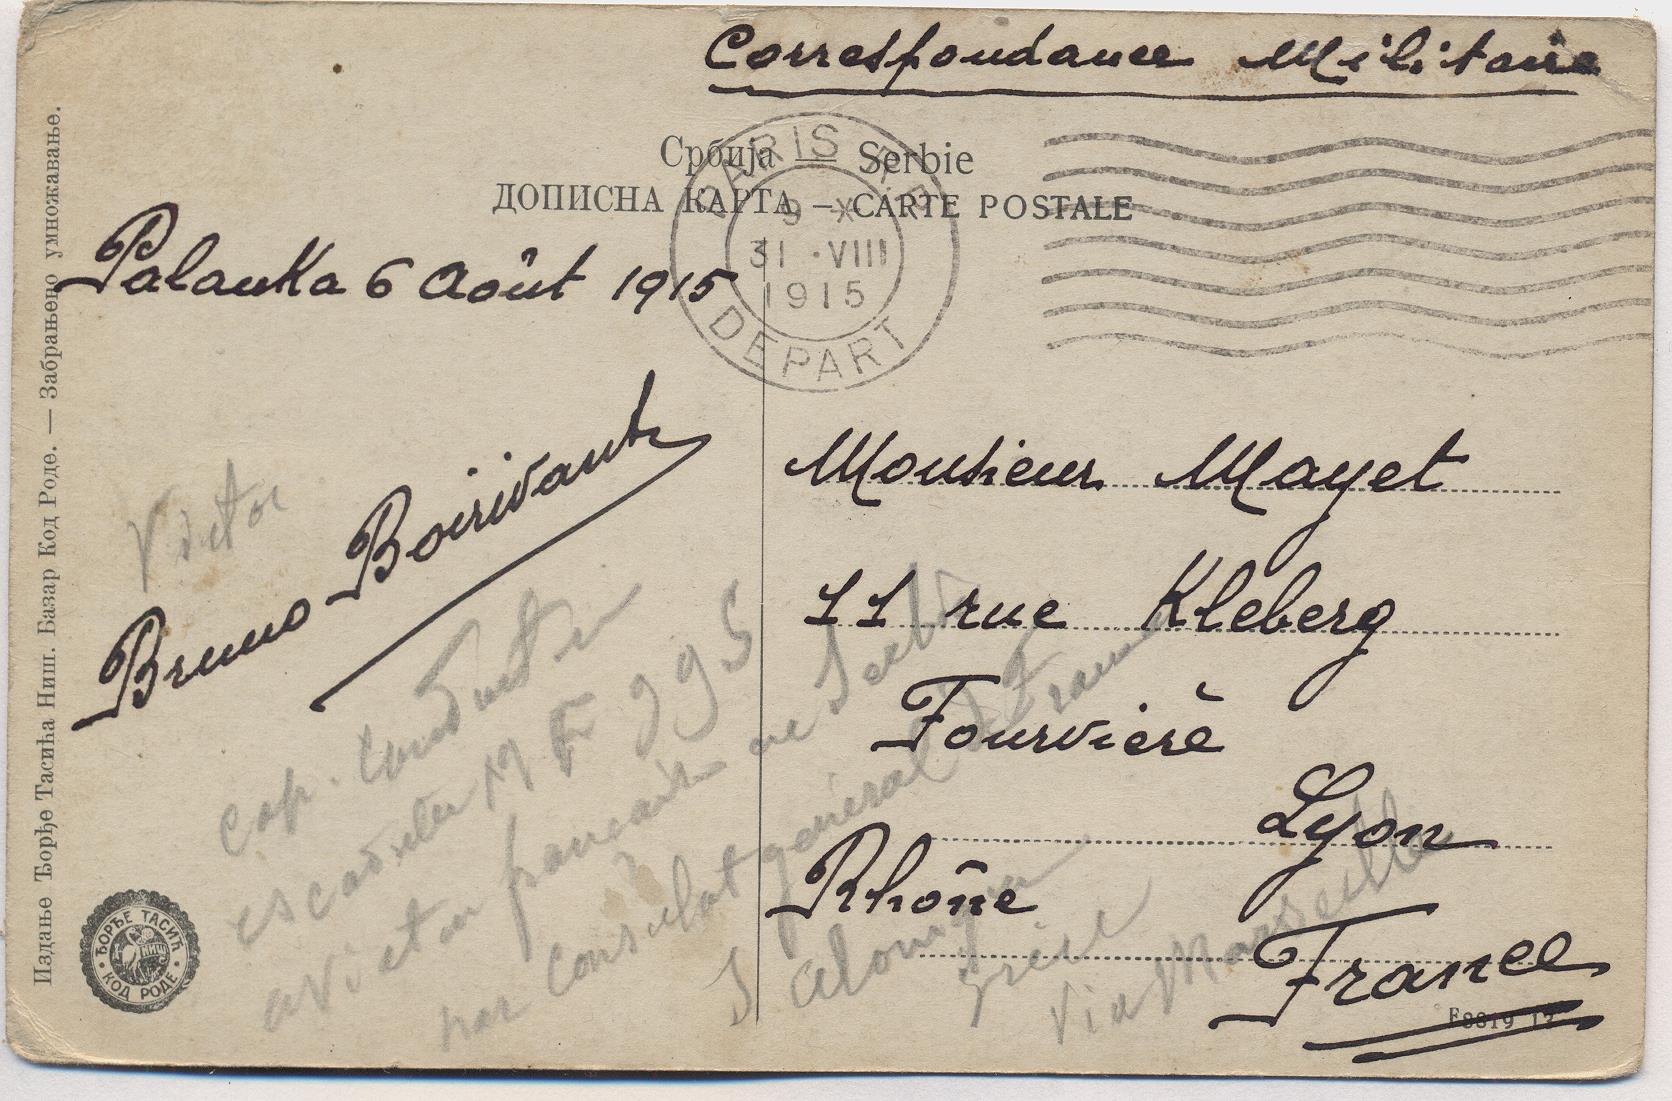 Correspondance Militaire
Србија — Serbie
ДОПИСНА КАРТА — CARTE POSTALE
PARIS
31 · VIII
1915
DEPART
Palanka 6 Août 1915
Bruno-Boirivant
Victor
Monsieur Mayet
11 rue Kleberg
Fourvière
Lyon
Rhône
France
cap.
escadrille M F 99 S
aviation française de Serbie
par Consulat général de France
Salonique
Grèce
Via Marseille
Издање Ђорђе Тасића Ниш. Базар Код Роде. — Забрањено умножавање.
ЂОРЂЕ ТАСИЋ
НИШ
КОД РОДЕ